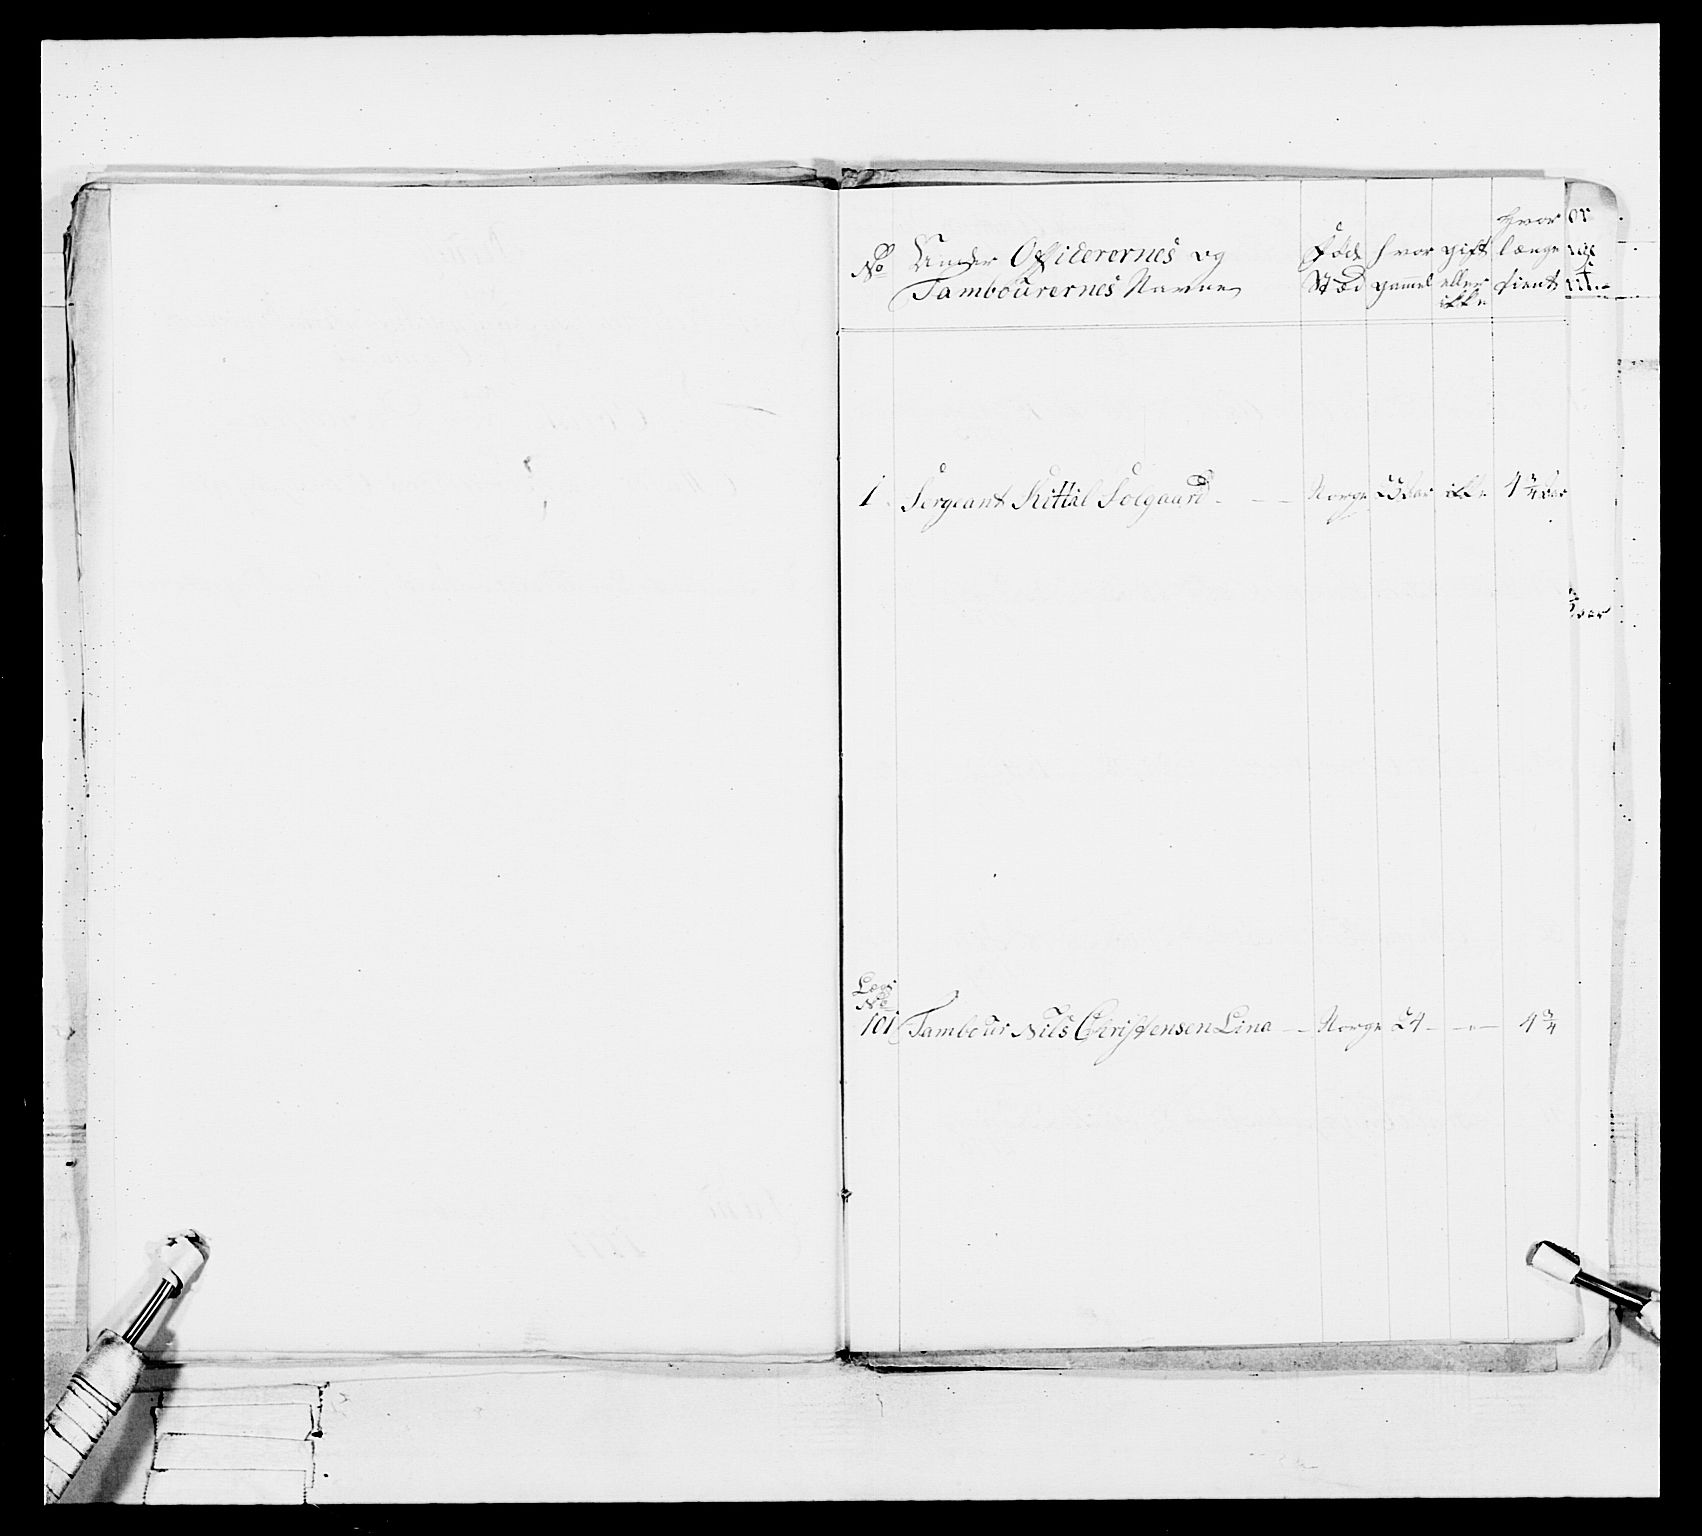 No Under Officerernes og
Tambourernes Navne
Fød
Stæd
hvor
gammel
gift
eller
ikke
hvor
længe
tient
1. Sergeant Kittil Solgaard - - - Norge 23 aar ikke 4 3/4 aar
Lægs
No
101 Tambour Nils Christensen Lina - - Norge 24 - - " - 4 3/4